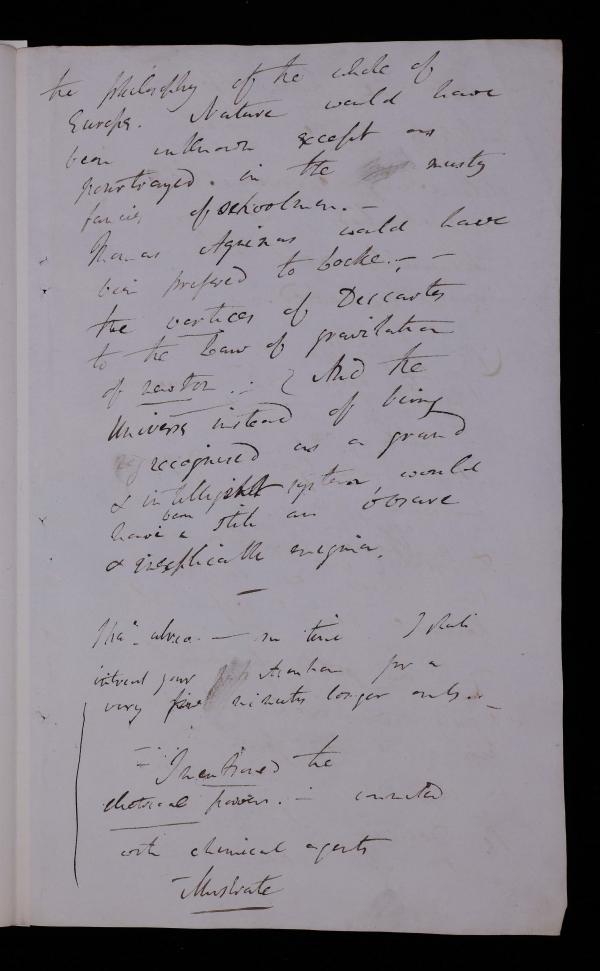 the philosophy of the whole of
Europe. Nature would have
been unknown except as
pourtrayed. in the musty
fancies of schoolmen. -
Thomas Aquinas would have
been prefered to Locke. -
the vortices of Descartes
to the Law of gravitation
of newton. - And the
Universe instead of being
recognised as a grand
& intelligent system, would
have been still an obscure
& inexplicable enigma.
in time I shall
intreat your for a
very few minutes longer only. -
I mentioned the
electrical powers. - connected
with chemical agents
Illustrate